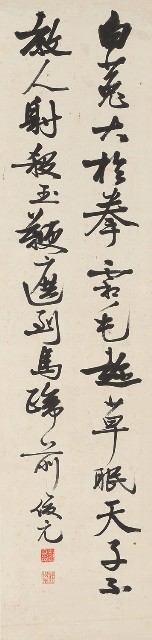 白菟大於拳霜毛趁草眠天子不
教人射殺玉鞭遮到馬蹄前